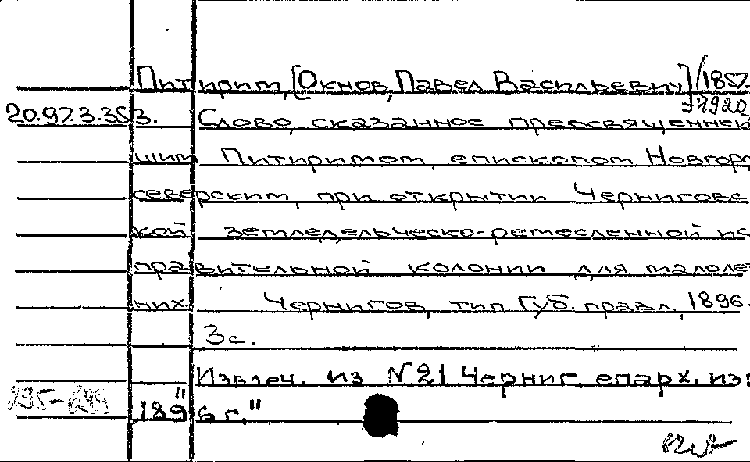 Питирим, [Окнов, Павел Васильевич] /1857-
1920
20.97.3.353. Слово, сказанное преосвященней
шим Питиримом, епископом Новгор
северским, при открытии Чернигово
кой земледельческо-ремесленной ис
правительной колонии для малоле
них. Чернигов, тип. Губ. правл., 1896.
3 с.
Извлеч. из N 21 "Черниг. епарх. изв
1896 г."